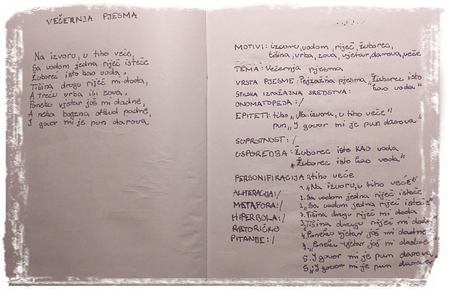 VEČERNJA PJESMA
Na izvoru, u tiho veče,
Sa vodom jedna riječ isteče
Žuborec isto kao voda,
Tišina drugu riječ mi doda,
A treću vrba ili zova,
Poneku vjetar još mi dadne,
A neka bogzna otkud padne,
I govor mi je pun darova.
MOTIVI: izvoru, vodom, riječ, žuborec,
tišina, vrba, zova, vjetar, darova, veče
TEMA: Večernja pjesma
VRSTA PJESME: Pejzažna pjesma „Žuborec isto
STILSKA IZRAŽAJNA SREDSTVA: kao voda"
ONOMATOPEJA: /
EPITETI: tiho „Na izvoru, u tiho veče"
pun „I govor mi je pun darova"
SUPROTNOST: /
USPOREDBA: Žuborec isto kao voda
„Žuborec isto kao voda"
PERSONIFIKACIJA: tiho veče
ALITERACIJA: / 1. „Na izvoru, u tiho veče"
METAFORA: / 2. Sa vodom jedna riječ isteče
HIPERBOLA: / 3. Tišina drugu riječ mi doda
RETORIČKO 3. Tišina drugu riječ mi doda
PITANJE: / 4. Poneku vjetar još mi dadne
„Poneku vjetar još mi dadne"
5. I govor mi je pun darova
5. „I govor mi je pun darova